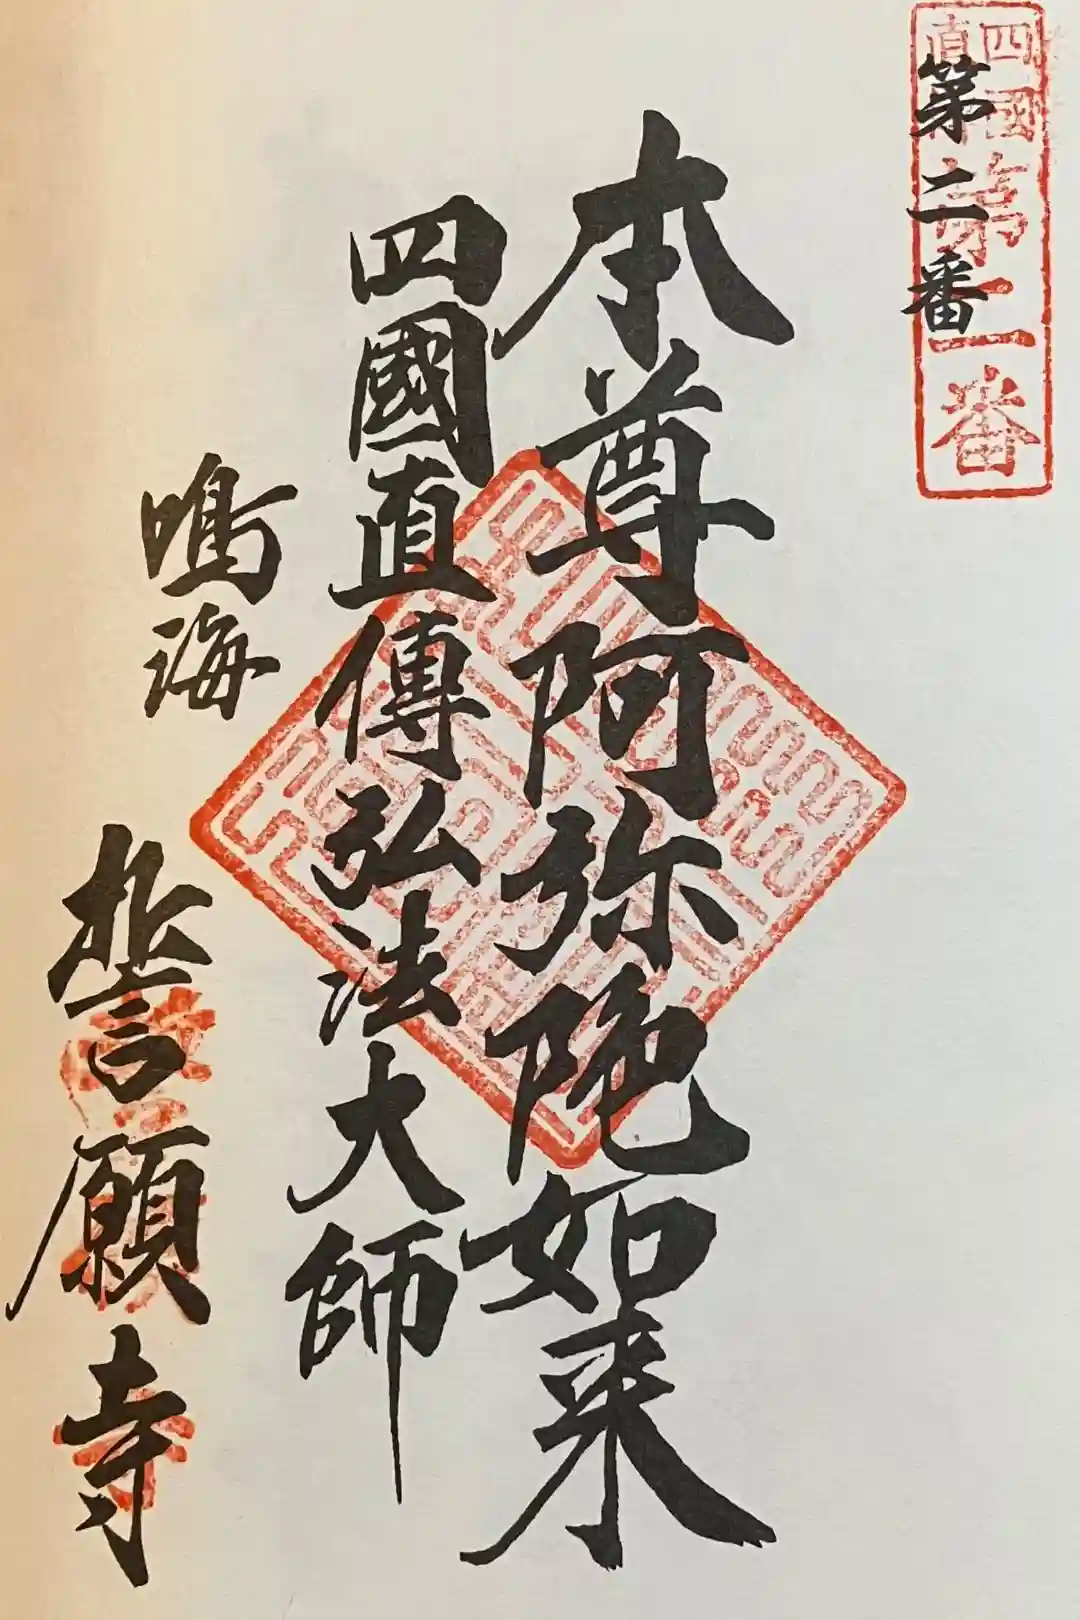 四國直伝
第二番
第二番
本尊阿弥陀如来
四國直傳弘法大師
鳴海
誓願寺